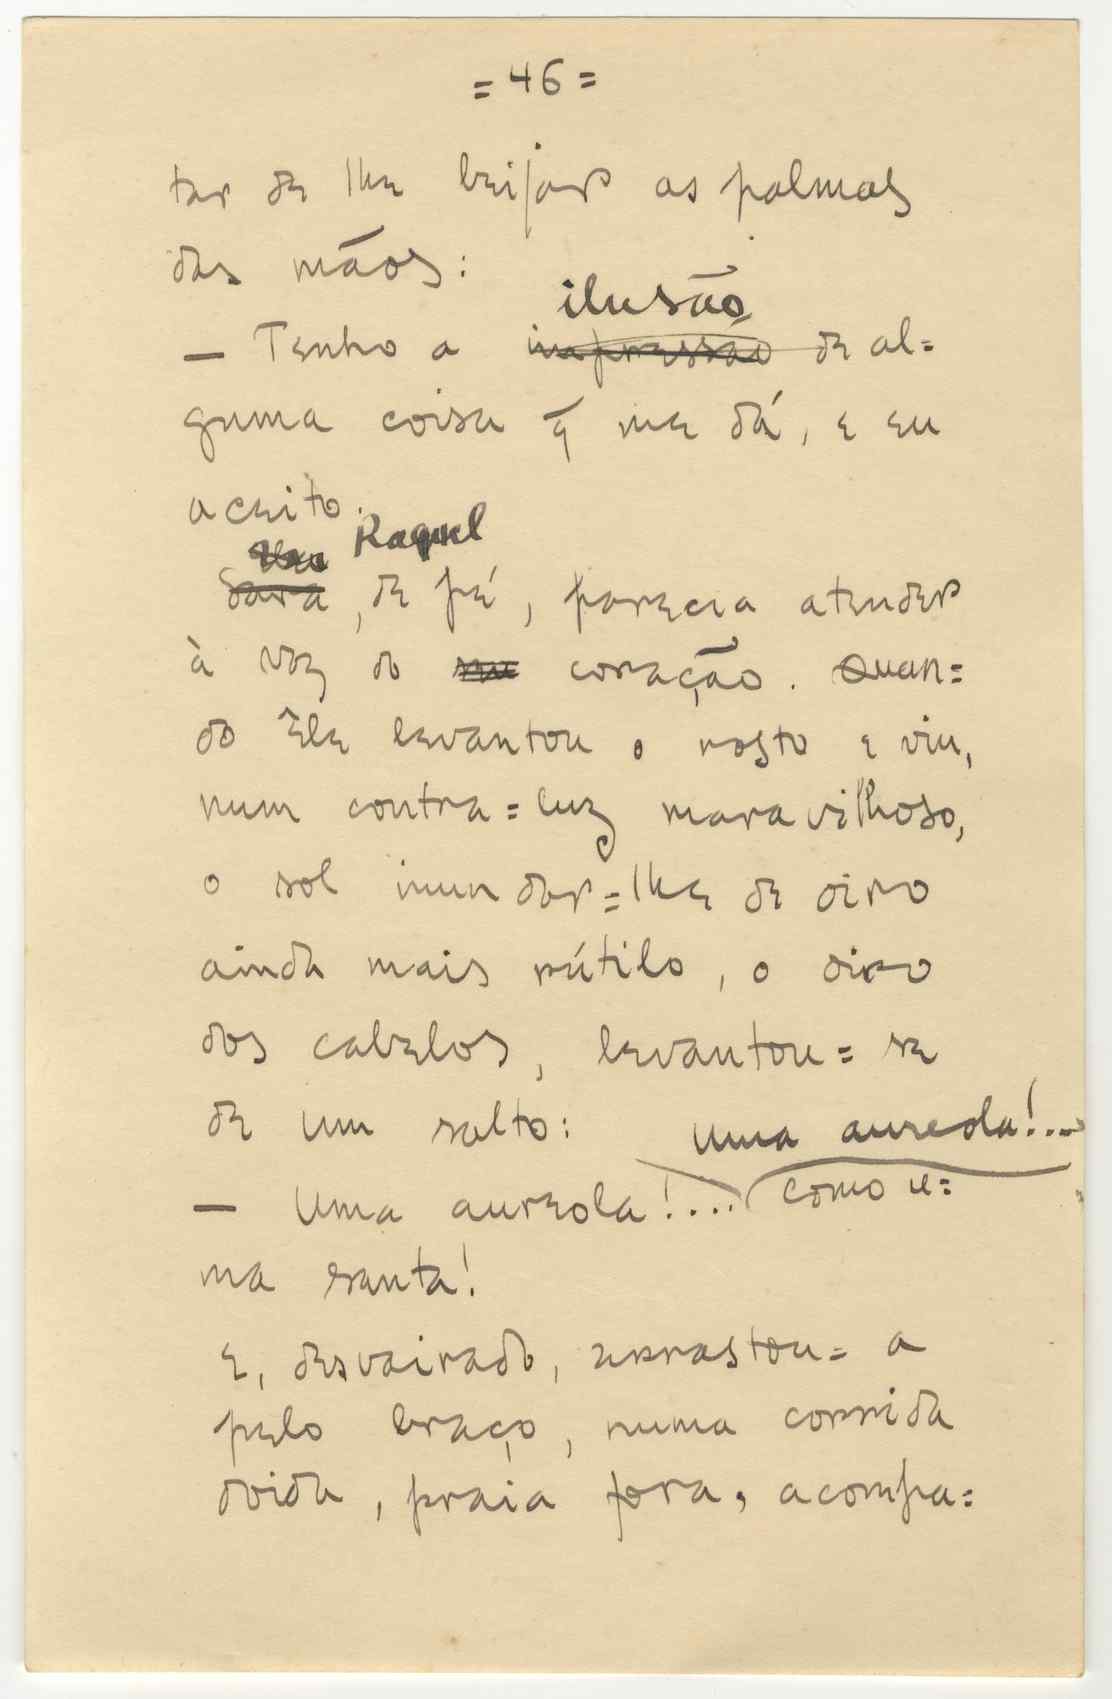 =46=
tar de lhe beijar as palmas
das mãos:
ilusão
— Tenho a impressão de al=
guma coisa q̃ me dá, e eu
aceito.
Raquel
Sara, de pé, parecia atender
à voz do coração. Quan=
do êle levantou o rosto e viu,
num contra=luz maravilhoso,
o sol inundar=lhe de oiro
ainda mais rútilo, o oiro
dos cabelos, levantou=se
de um salto:
Uma aureola!...
— Uma aureola!.... como u=
ma santa!
E, desvairado, arrastou=a
pelo braço, numa corrida
doida, praia fora, acompa=